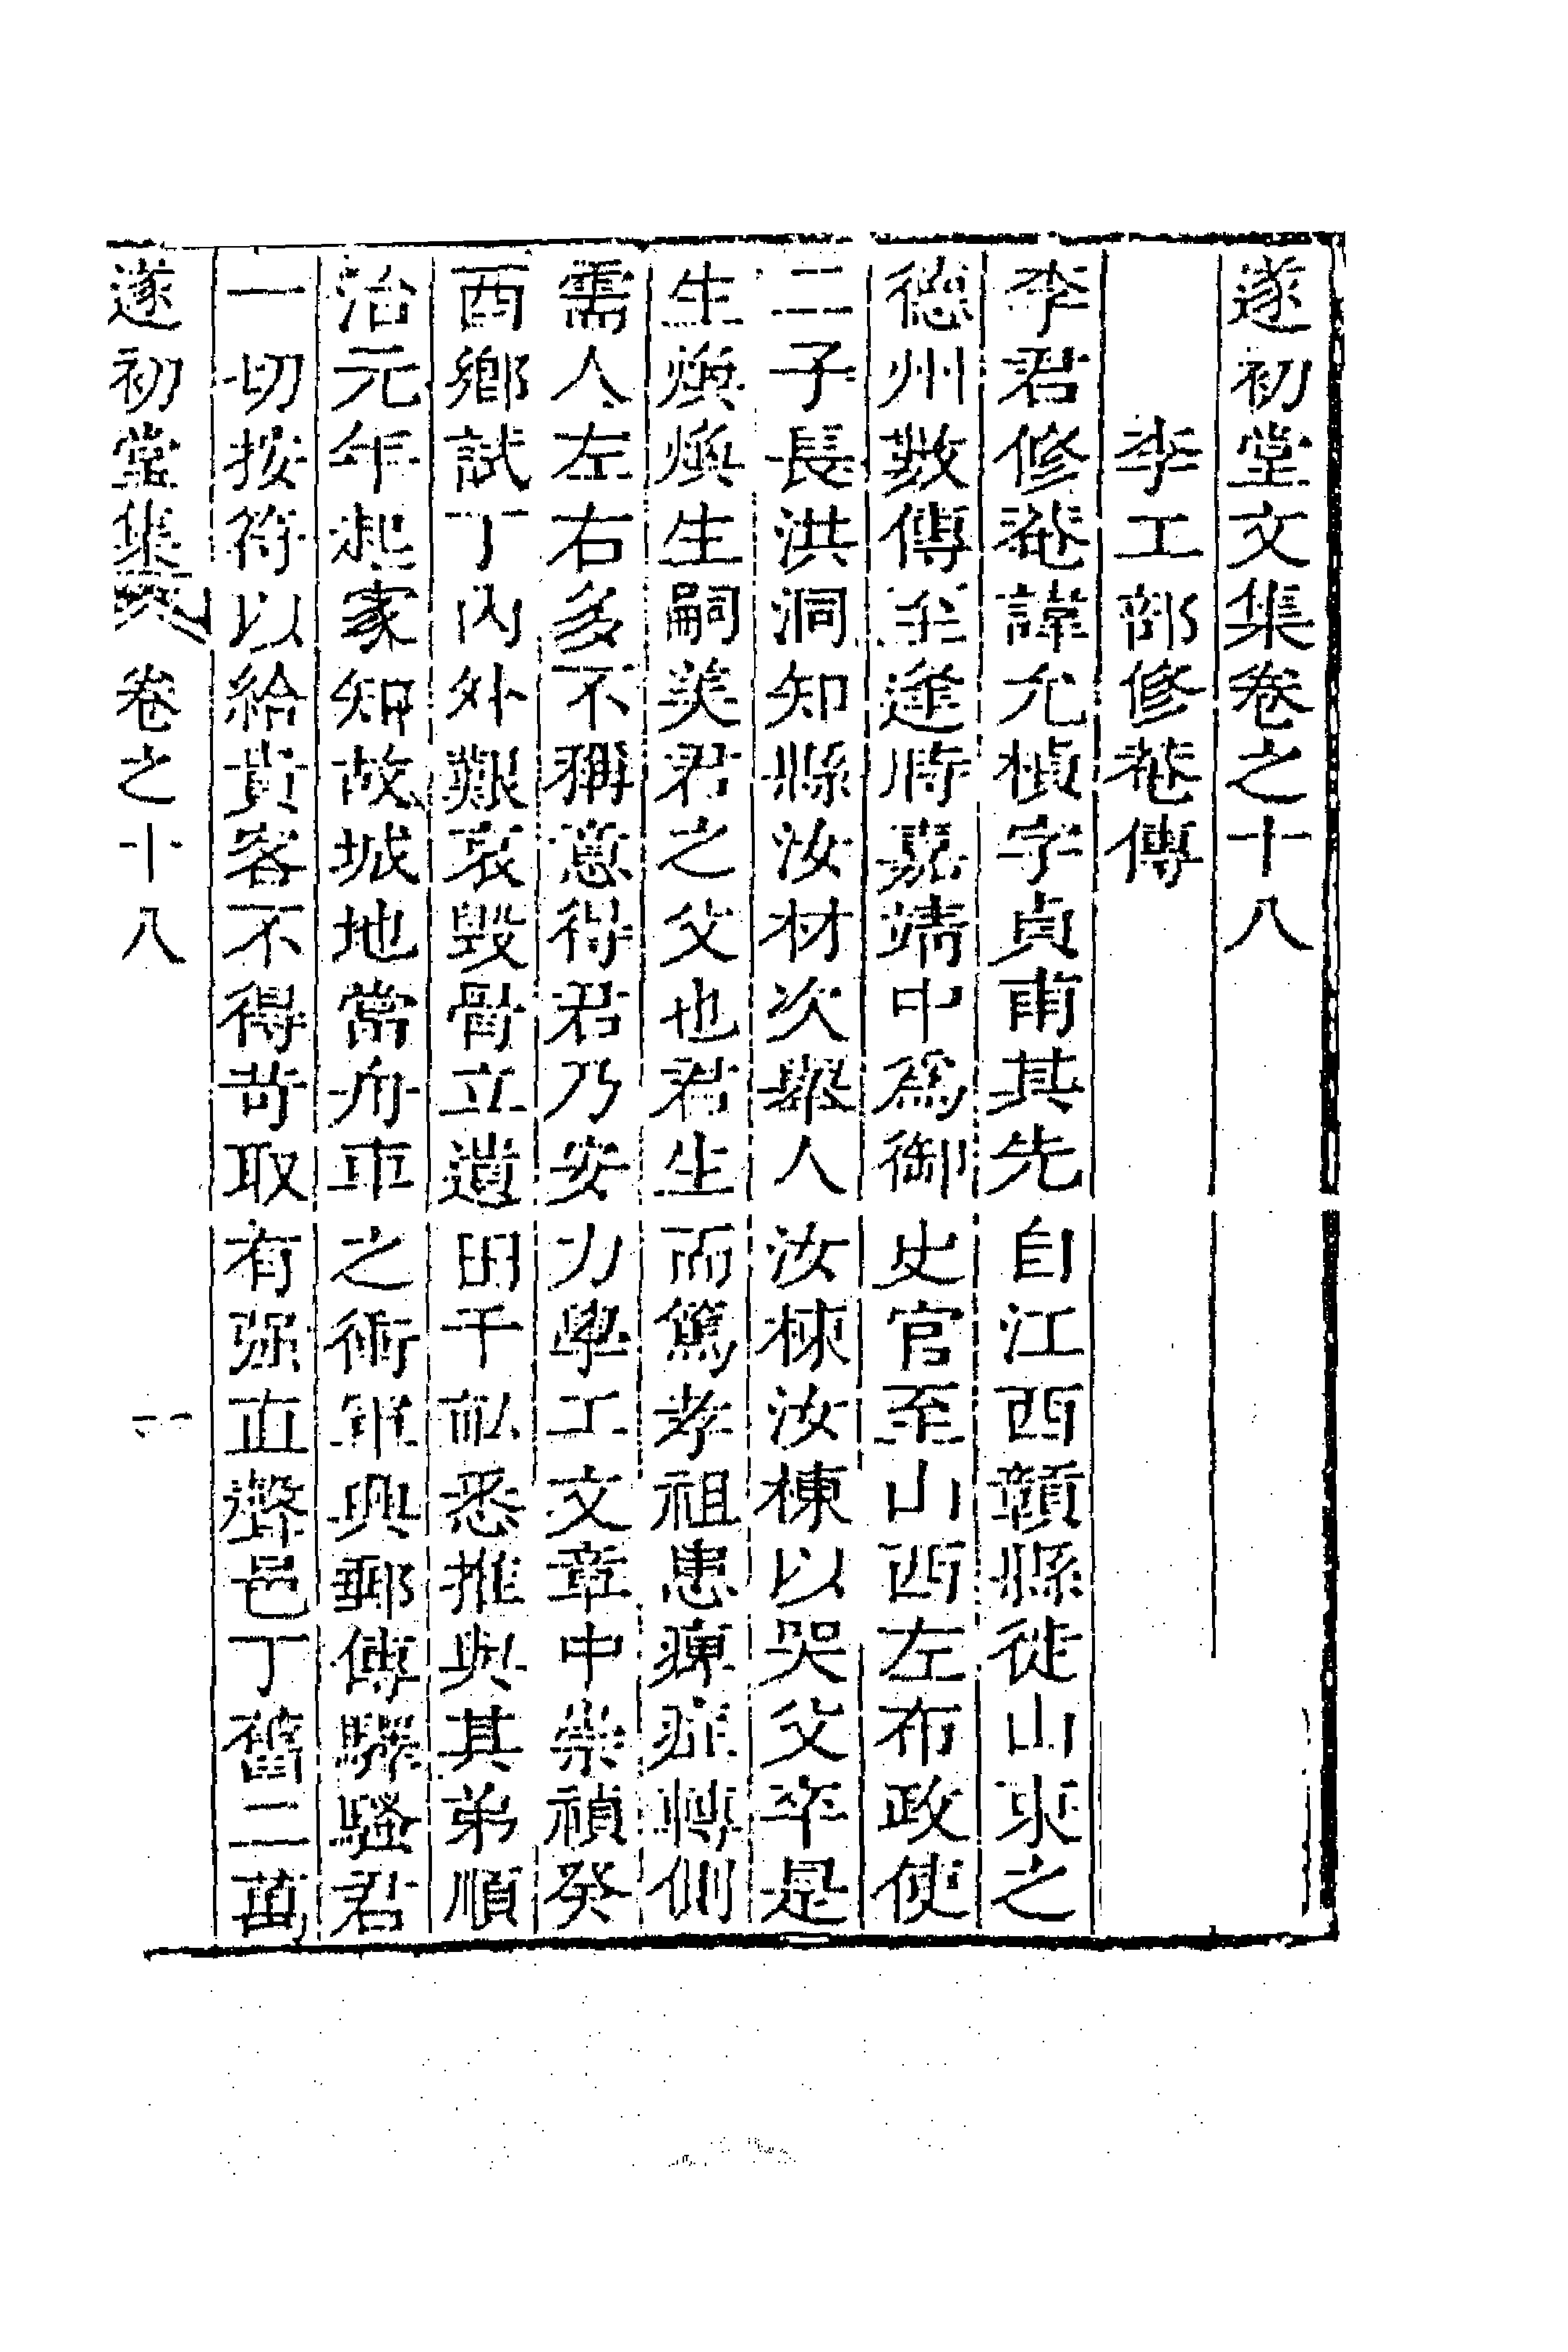 遂初堂文集卷之十八
李工部修菴傳
李君修菴諱允楨字貞甫其先自江西贛縣徙山東之
德州數傳至逢時嘉靖中爲御史官至山西左布政使
二子長洪洞知縣汝材次舉人汝楝汝棟以哭父卒是
生煥煥生嗣美君之父也君生而篤孝祖患痺症轉側
需人左右多不稱意得君乃安力學工文章中崇禎癸
酉鄉試丁內外艱哀毀骨立遺田千畝悉推與其弟順
治元年起家知故城地當舟車之衝軍興郵傳驛騷君
一切按符以給貴客不得苛取有强直聲邑丁舊二萬
遂初堂集 卷之十八 一